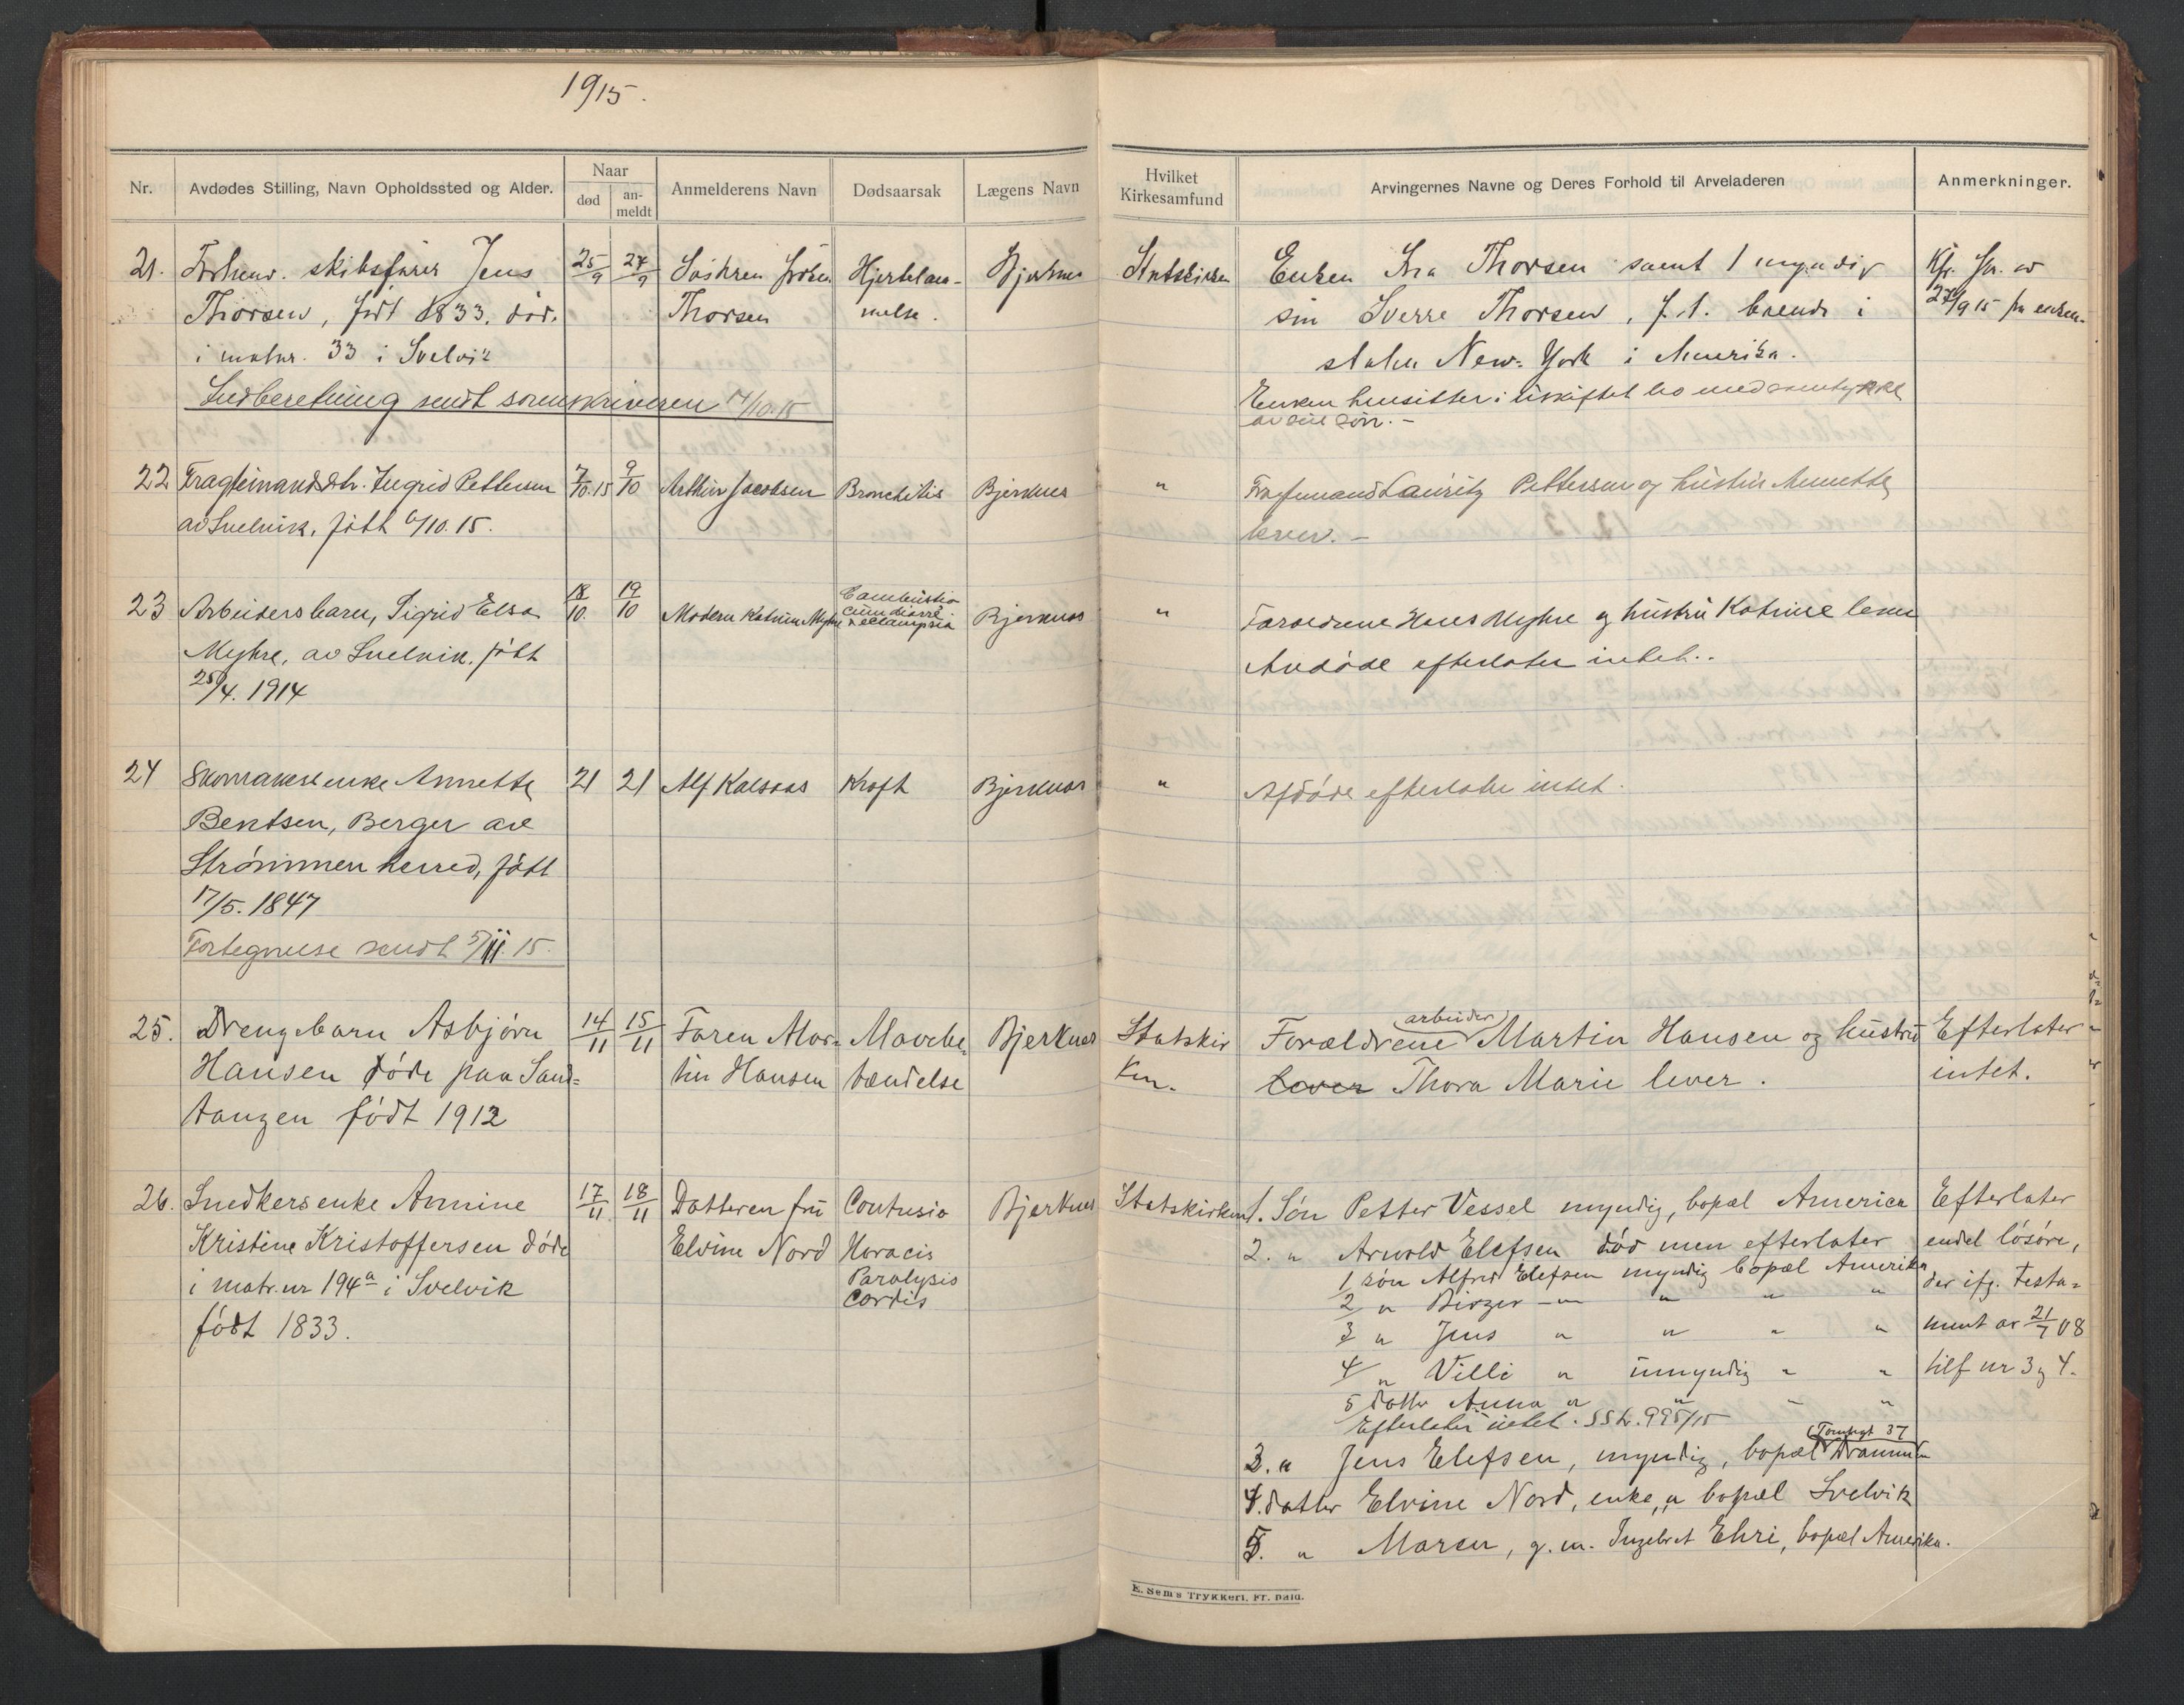 1915.
Nr.
Avdødes Stilling, Navn Opholdssted og Alder.
Naar
død
an-
meldt
Anmelderens Navn
Dødsaarsak
Lægens Navn
Hvilket
Kirkesamfund
Arvingernes Navne og Deres Forhold til Arveladeren
Anmerkninger.
21. Forhenv. skibsfører Jens 25/9 27/9 Hjertelam- Bjerknes Statskirken Enken Thorsen samt 1 myndig
Thorsen, født 1833. død. Thorsen melse. søn Sverre Thorsen, f. t. boende i 27/9 15 fra enken.
i matnr. 33 i Svelvik staten New-York i Amerika.
Indberetning sendt sorenskriveren /10.15 Enken hensitter i uskiftet bo med samtykke
av sin søn. -
22 Fragtemandsdtr. Ingrid Pettersen 7/10.15 9/10 Arthur Jacobsen Bronchitis Bjerknes " Fragtemand Lauritz Pettersen og hustru Annette
av Svelvik, født 6/10. 15. lever. -
23 Arbeidersbarn, Sigrid Elsa 18/10. 19/10 Moderen Katrine Myhre Combustio
cum diarre
& eclampsia Bjerknes " Forældrene Hans Myhre og hustru Katrine lever
Myhre, av Svelvik. født Avdøde efterlater intet..
25/4. 1914
24 Skomakerenke Annette 21 21 Alf Kalsaas Kræft Bjerknes " Afdøde efterlater intet.
Bentsen, Berger av
Strømmen herred, født
17/5. 1847
Fortegnelse sendt 5/11. 15.
25. Drengebarn Asbjørn 14/11 15/11 Faren Mar- Mavebe- Bjerknes Statskir Forældrene arbeider Martin Hansen og hustru Efterlater
Hansen døde paa Sand= tin Hansen tændelse ken. lever Thora Marie lever. intet.
tangen født 1912
26. Snedkersenke Annine 17/11 18/11 Datteren fru Contusio Bjerknes Statskirken 1. Søn Petter Vessel myndig, bopæl America Efterlater
Kristine Kristoffersen døde Elvine Nord Horacis 2. " Arnold Elefsen død men efterlater endel løsøre,
i matr. nr 194a i Svelvik Paralysis 1 søn Alfred Elefsen myndig bopæl Amerika der ifg. testa=
Cordis 2/ " Birger - " " " "
født 1833. 3/ " Jens " " " " ment av 21/7 08
4/ " Villi " umyndig " " tilf nr 3 og 4.
5 datter Anna " " " "
Efterlater intet. SSk. 995/15
3. " Jens Elefsen, myndig, bopæl (Tomtegt 37 Drammen
4. datter Elvine Nord, enke, " bopæl Svelvik
5. " Maren, g. m. Ingebret Ehri, bopæl Amerika.
E. Sem's Trykkeri, Fr. hald.